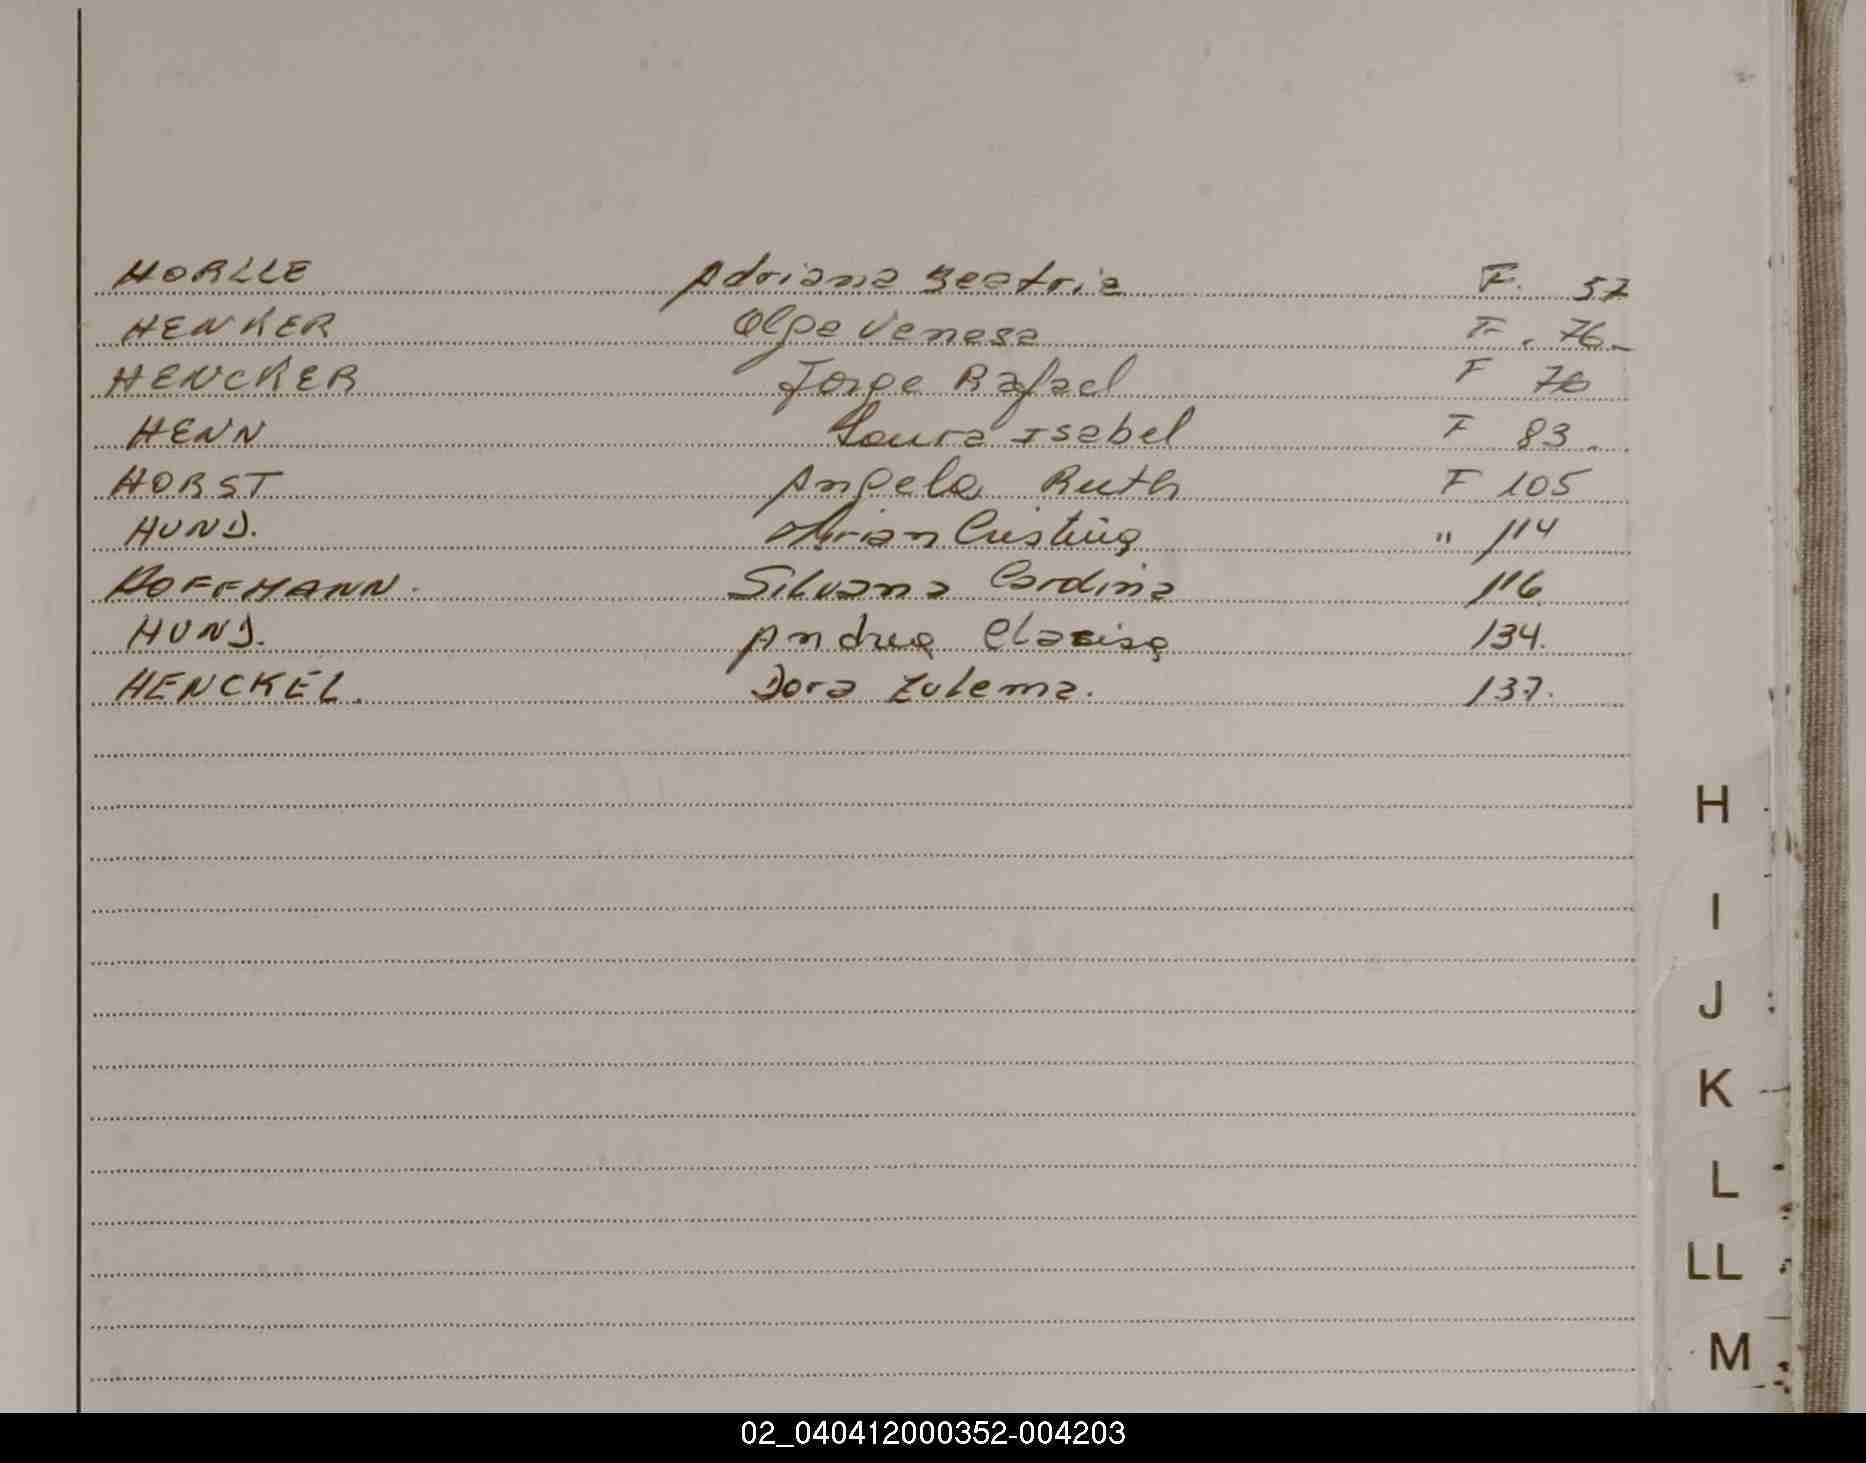 HORLLE Adriana Beatriz F. 57
HENKER Olga Venesa F. 76.
HENCKER Jorge Rafael F 76
HENN Laura Isabel F 83.
HORST Angela Ruth F 105
HUND. Mirian Cristina " 114
HOFFMANN. Silvana Cardina 116
HUND. Andrea Clarisa 134.
HENCKEL. Dora Zulema. 137.
H
I
J
K
L
LL
M
02_040412000352-004203